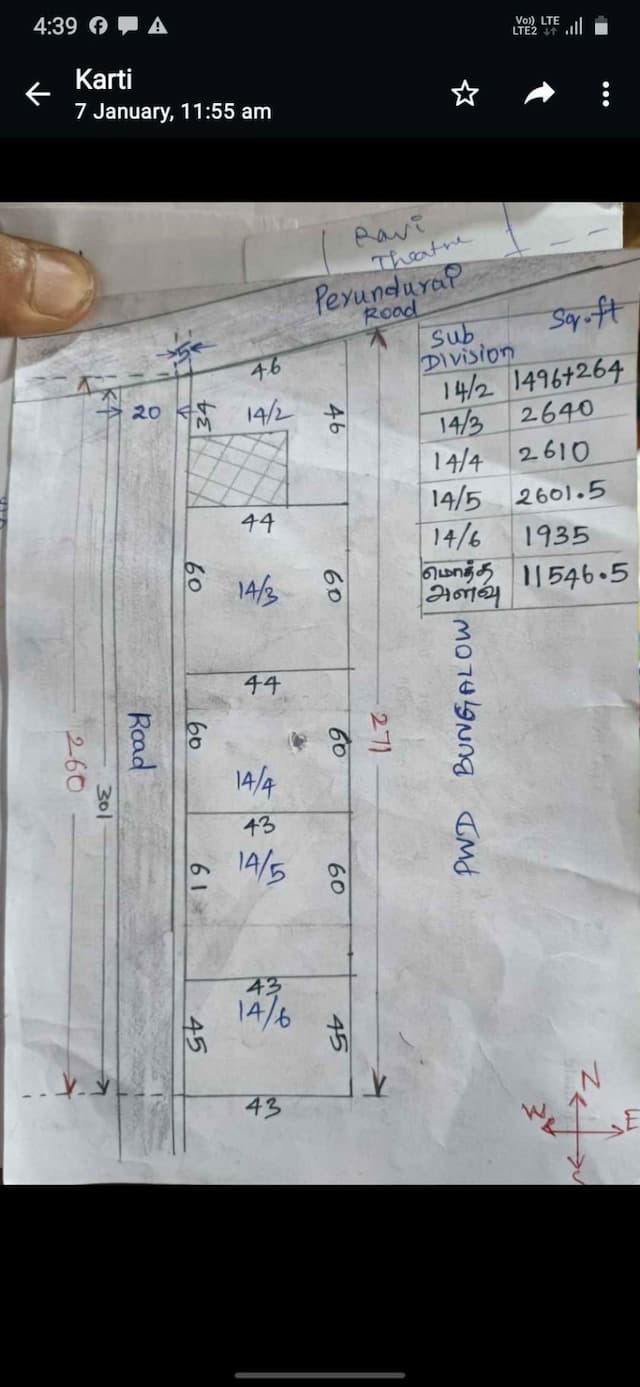 4:39
Vo)) LTE
LTE2
Karti
7 January, 11:55 am
Ravi
Theatre
Perundurai
Road
Sub
Division Sq.ft
14/2 1496+264
14/3 2640
14/4 2610
14/5 2601.5
14/6 1935
மொத்த
அளவு 11546.5
5
46
20
34
14/2
46
44
60
14/3
60
44
60
60
14/4
43
14/5
61
60
43
14/6
45
45
43
271
260
301
Road
PWD BUNGALOW
N
W
E
S